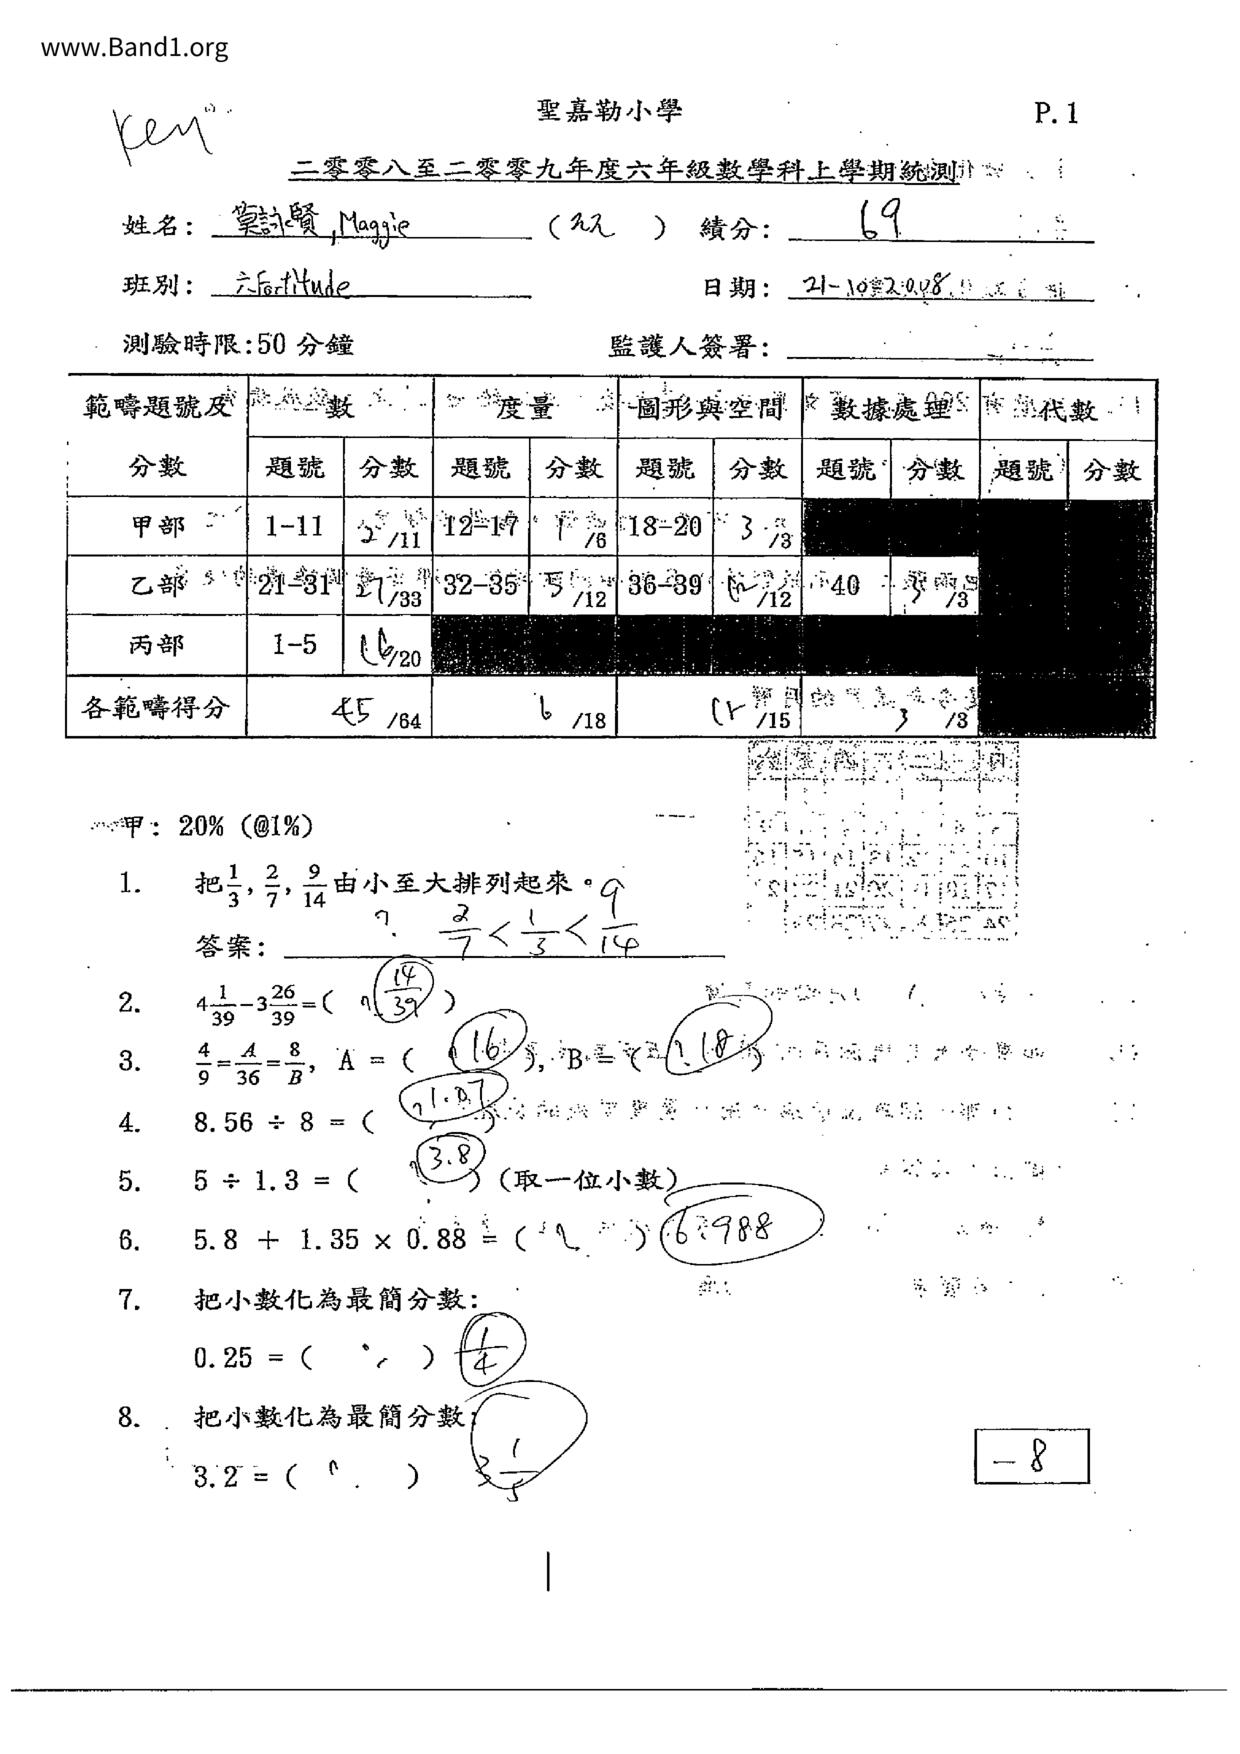 www.Band1.org
Key
聖嘉勒小學 P.1
二零零八至二零零九年度六年級數學科上學期統測
姓名: 詠賢, Maggie ( 22 ) 績分: 69
班別: 六Fortitude 日期: 21-10-2008
測驗時限:50 分鐘 監護人簽署:
範疇題號及分數 數 度量 圖形與空間 數據處理 代數
題號 分數 題號 分數 題號 分數 題號 分數 題號 分數
甲部 1-11 2/11 12-17 1/6 18-20 3/3
乙部 21-31 27/33 32-35 5/12 36-39 12/12 40 3/3
丙部 1-5 16/20
各範疇得分 45/64 6/18 15/15 3/3
甲: 20% (@1%)
1. 把1/3, 2/7, 9/14由小至大排列起來。
答案: ? 2/7 < 1/3 < 9/14
2. 4 1/39 - 3 26/39 = ( 14/39 )
3. 4/9 = A/36 = 8/B, A = ( 16 ), B = ( 18 )
4. 8.56 ÷ 8 = ( 1.07 )
5. 5 ÷ 1.3 = ( 3.8 ) (取一位小數)
6. 5.8 + 1.35 × 0.88 = ( ) 6.988
7. 把小數化為最簡分數:
0.25 = ( ) 1/4
8. 把小數化為最簡分數:
3.2 = ( ) 3 1/5
- 8